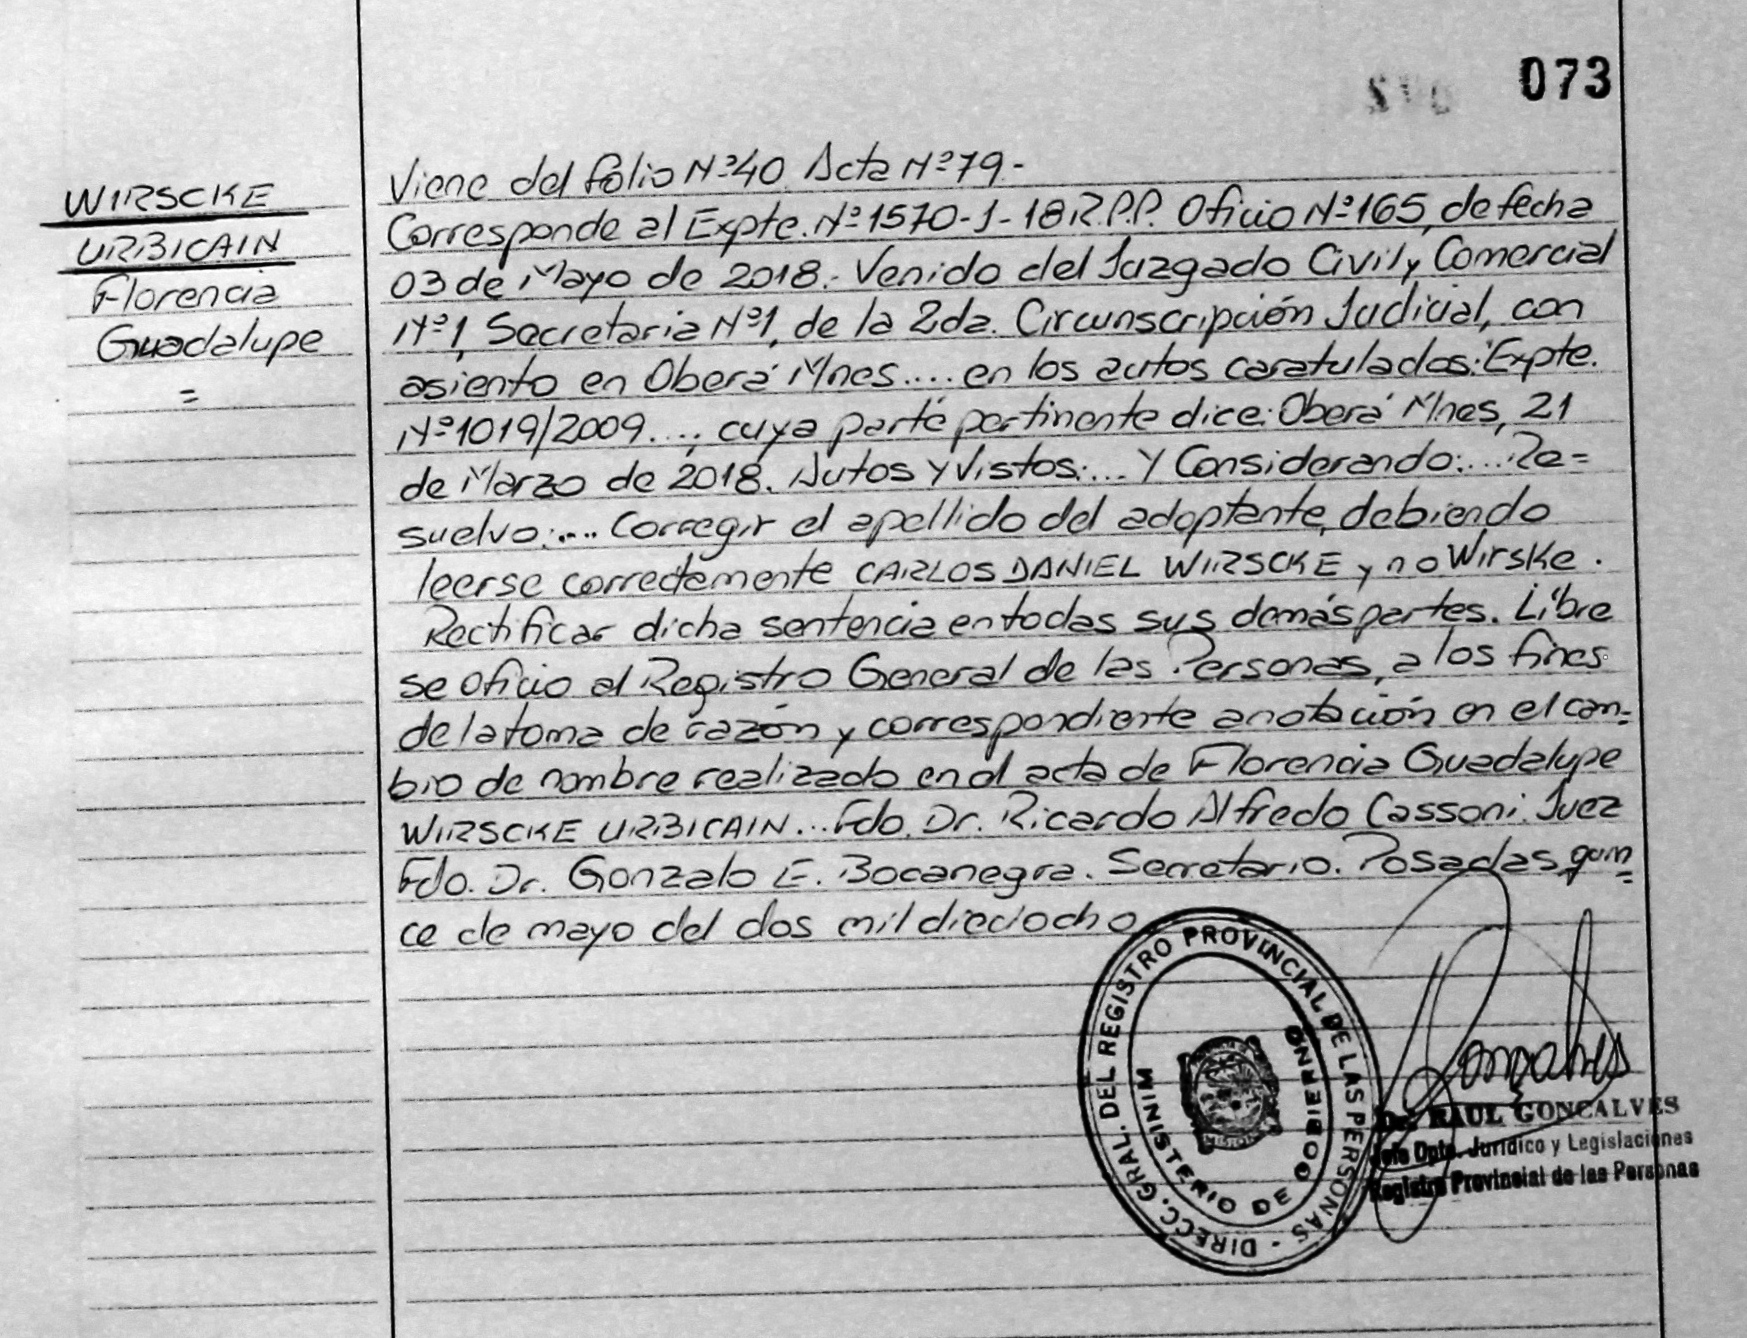 073
WIRSCKE
URBICAIN
Florencia
Guadalupe
=
Viene del folio Nº40 Acta Nº79.-
Corresponde al Expte. Nº1570-J-18 R.P.P. Oficio Nº165, de fecha
03 de Mayo de 2018.- Venido del Juzgado Civil y Comercial
Nº1, Secretaria Nº1, de la 2da. Circunscripción Judicial, con
asiento en Oberá Mnes.... en los autos caratulados: "Expte.
Nº1019/2009...., cuya parte pertinente dice: Oberá Mnes, 21
de Marzo de 2018. Autos y Vistos:.... Y Considerando:.... Re=
suelvo:.... Corregir el apellido del adoptante, debiendo
leerse correctamente CARLOS DANIEL WIRSCKE y no Wirske.
Rectificar dicha sentencia en todas sus demás partes. Libre
se oficio al Registro General de las Personas, a los fines
de la toma de razón y correspondiente anotación en el cam=
bio de nombre realizado en el acta de Florencia Guadalupe
WIRSCKE URBICAIN... Fdo. Dr. Ricardo Alfredo Cassoni. Juez
Fdo. Dr. Gonzalo E. Bocanegra. Secretario. Posadas, quin=
ce de mayo del dos mil dieciocho
DIRECC. GRAL. DEL REGISTRO PROVINCIAL DE LAS PERSONAS -
MINISTERIO DE GOBIERNO
MISIONES
Goncalves
Dr. RAUL GONCALVES
Jefe Dpto. Jurídico y Legislaciones
Registro Provincial de las Personas